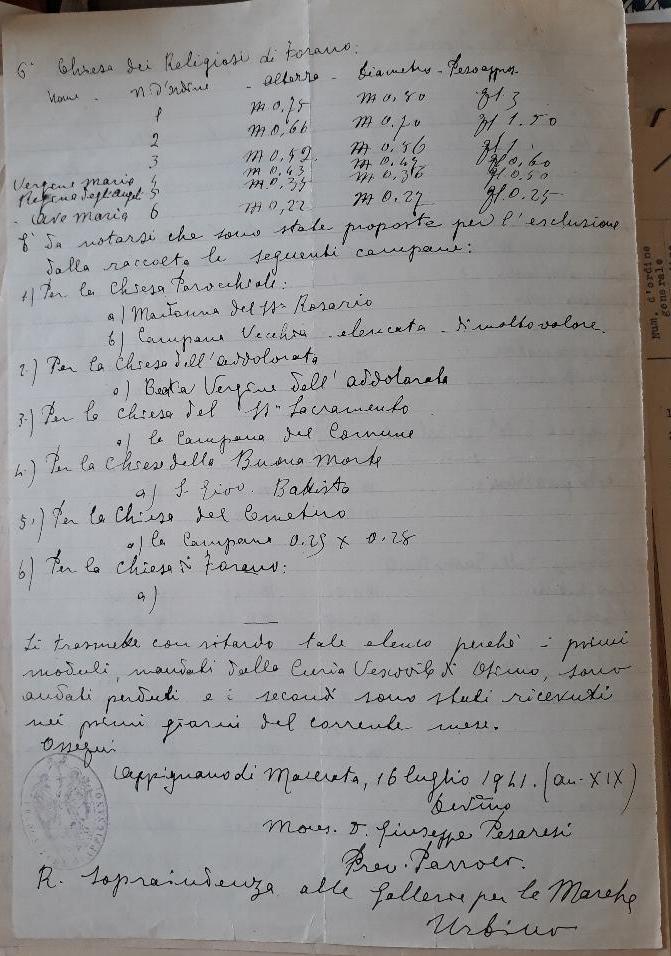 6° Chiesa dei Religiosi di Forano:
Nome - N. D'ordine - Altezza - Diametro - Peso appr.
1 m 0,75 m 0,80 ql 3
2 m 0,66 m 0,70 ql 1.50
3 m 0,52. m 0,56 ql 1
Vergine Maria 4 m 0,43 m 0,45 ql 0,60
Regina degli Angeli 5 m 0,35 m 0,36 ql 0,50
- Ave Maria 6 m 0,22 m 0,27 ql 0.25
E' da notarsi che sono state proposte per l'esclusione
dalla raccolta le seguenti campane:
1) Per la Chiesa Parocchiale:
a) Madonna del SS. Rosario
b) Campana Vecchia elencata - di molto valore.
2) Per la Chiesa dell'Addolorata
a) Beata Vergine dell'Addolorata
3) Per la Chiesa del SS. Sacramento
a) la Campana del Comune
4.) Per la Chiesa della Buona Morte
a) S. Giov. Battista
5.) Per la Chiesa del Cimitero
a) la Campana 0.25 x 0.28
6) Per la Chiesa di Forano:
a)
Si trasmette con ritardo tale elenco perchè i primi
moduli, mandati dalla Curia Vescovile di Osimo, sono
andati perduti e i secondi sono stati ricevuti
nei primi giorni del corrente mese.
Ossequi
Appignano di Macerata, 16 luglio 1941. (an. XIX)
Dev.mo
Mons. D. Giuseppe Pesaresi
Prev. Parroco.
R. Sopraindenza alle Gallerie per le Marche
Urbino
Num. d'ordine
generale